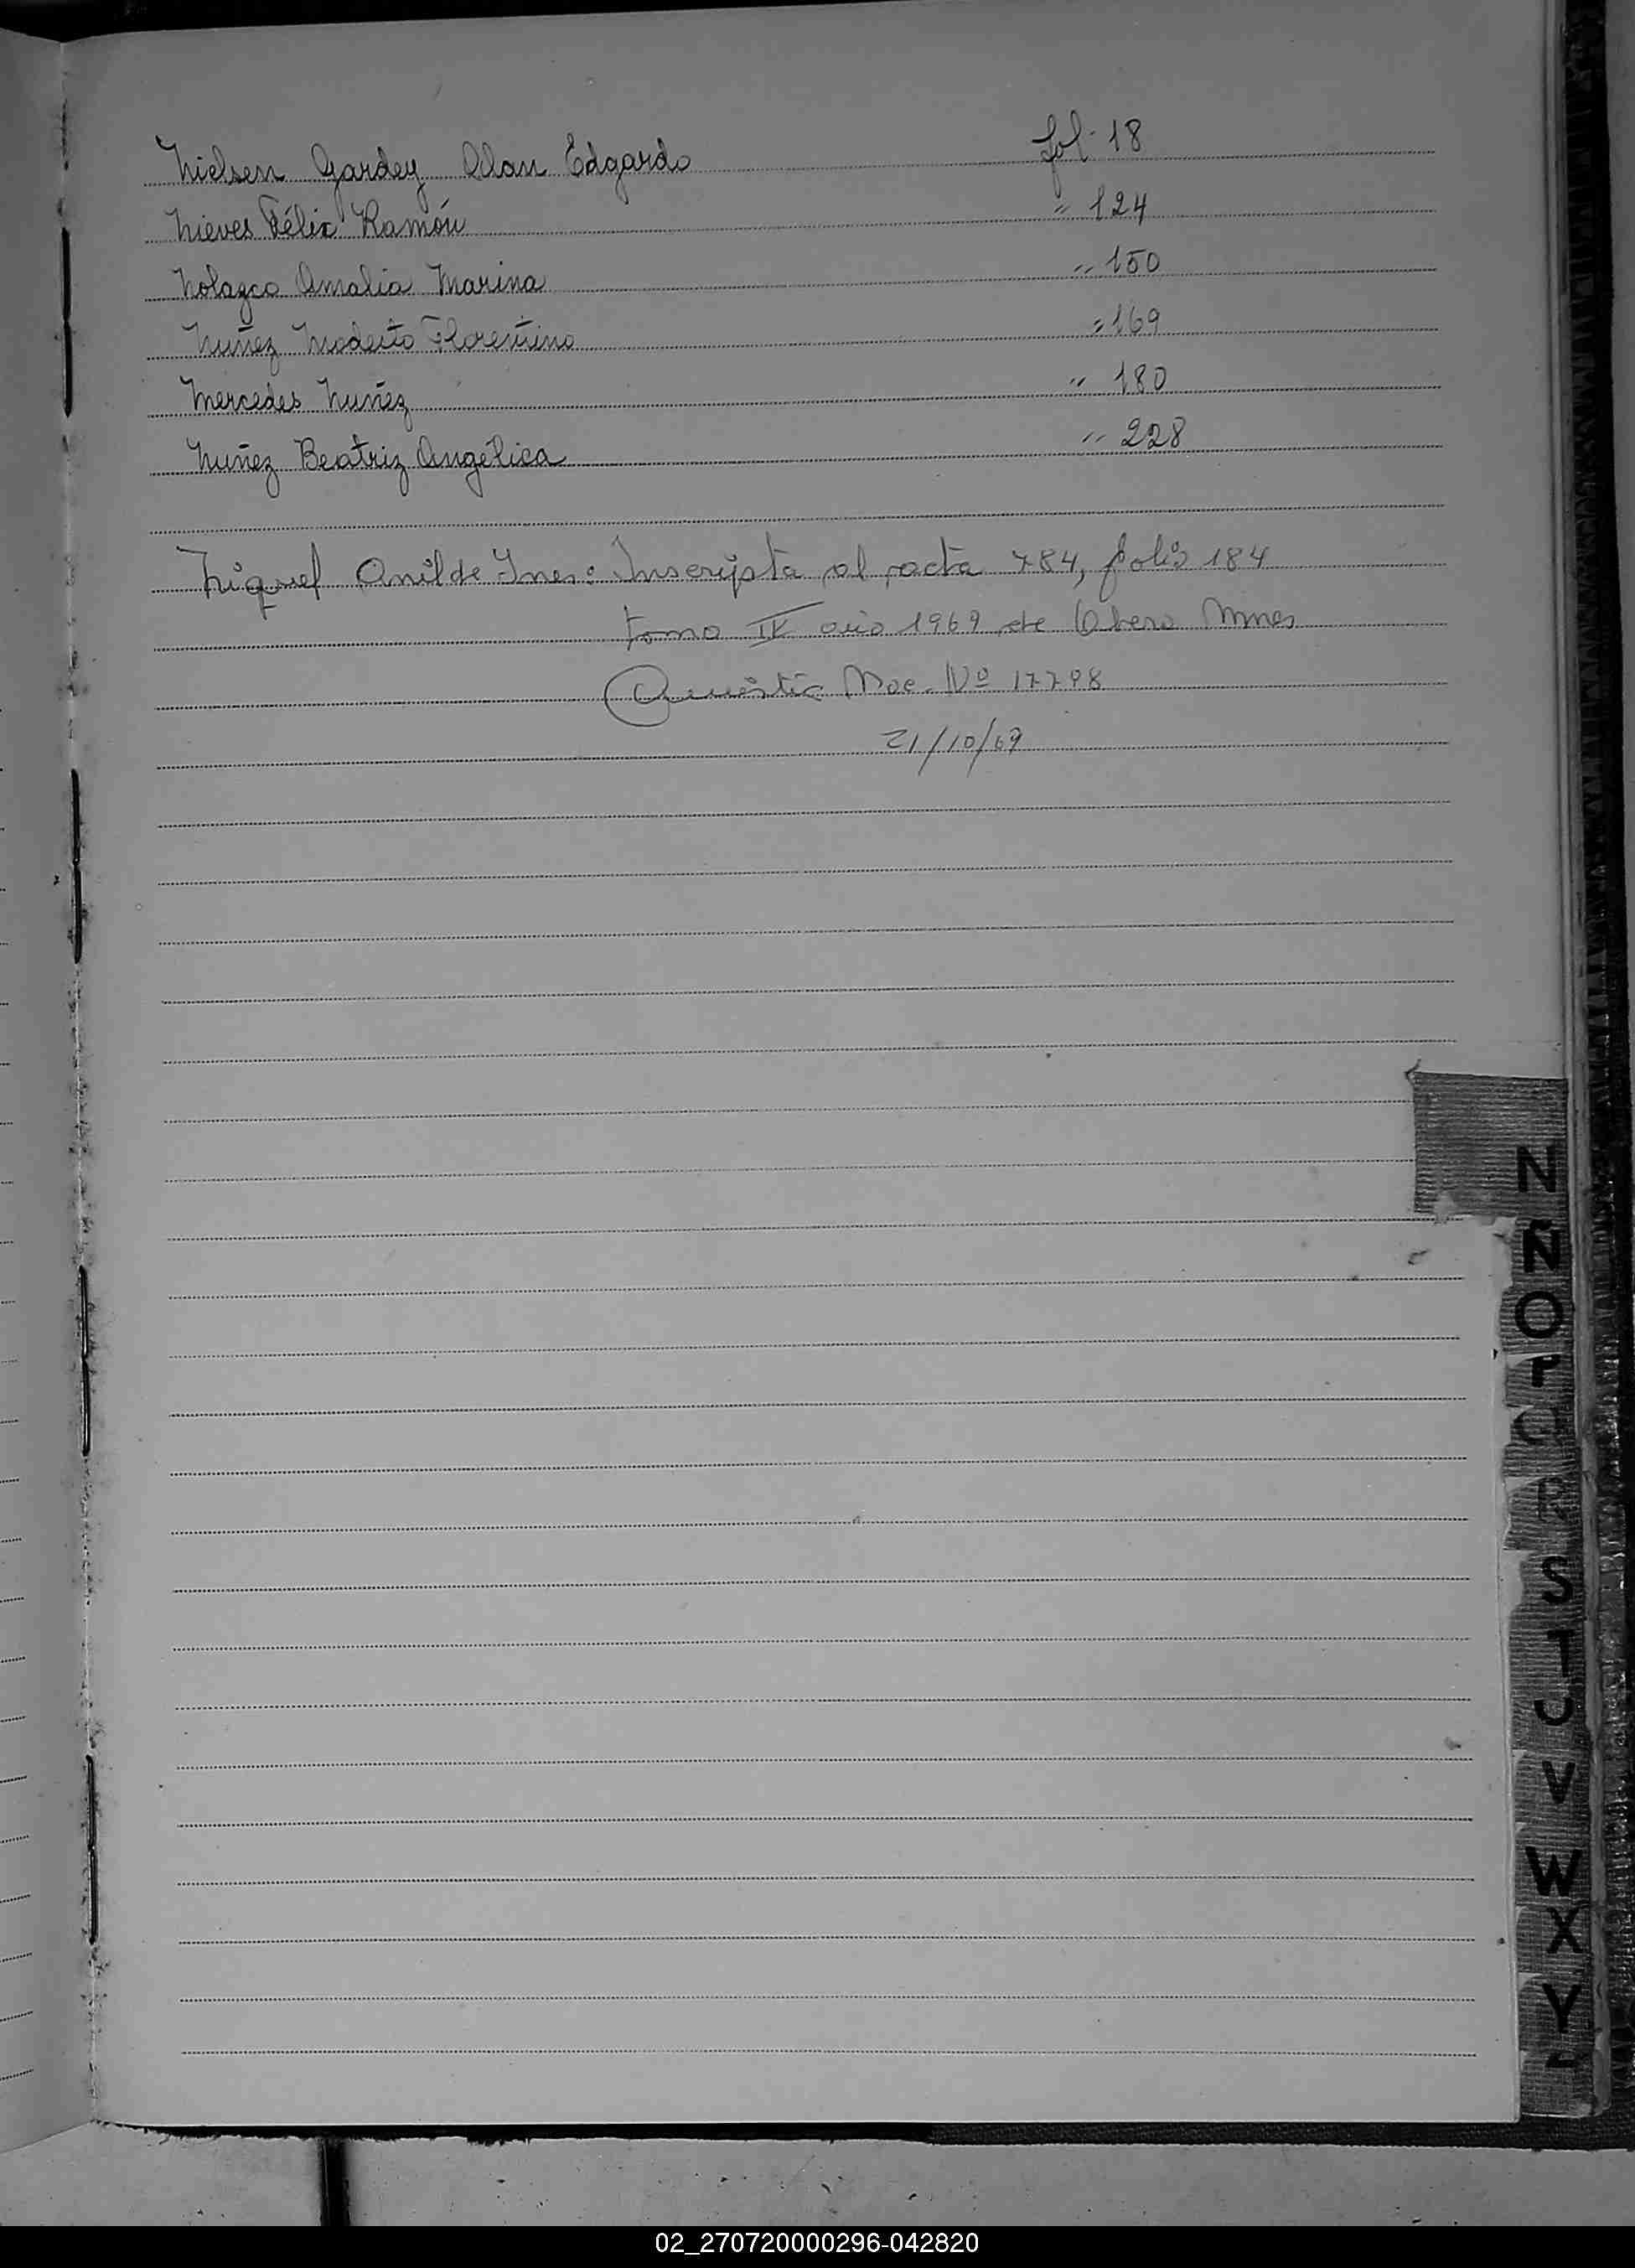 Nielsen Gardey Alan Edgardo fol. 18
Nieves Félix Ramón " 124
Nolazco Amalia Marina " 150
Nuñez Modesto Florentino " 169
Mercedes Nuñez " 180
Nuñez Beatriz Angélica " 228
Niquel Anilde Ines: Inscripta al acta 784, folio 184
tomo IV año 1969 de Obera Mnes
Amnistia Noc. Nº 17798
21/10/69
N
Ñ
O
P
Q
R
S
T
U
V
W
X
Y
02_270720000296-042820